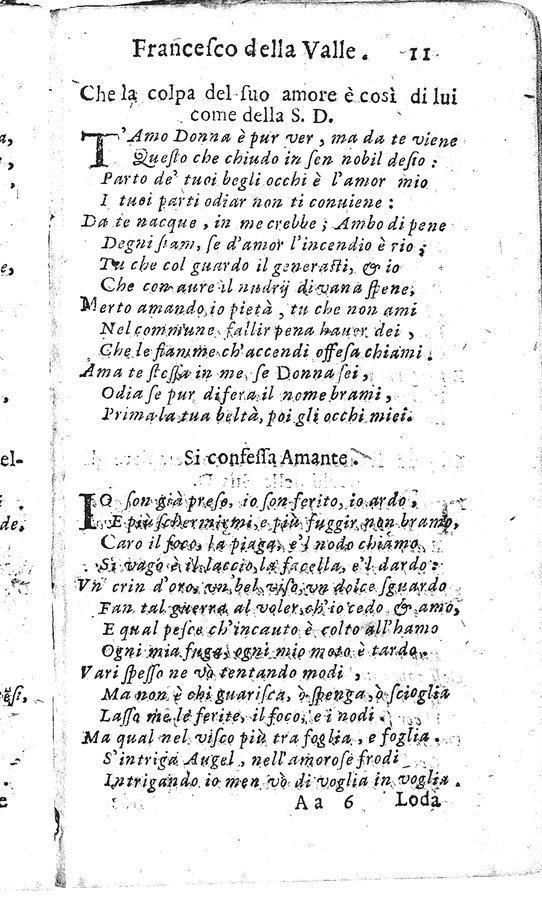 a,
,
e,
,
el-
.
de.
ësi,
e
Franceſco della Valle. 11
Che la colpa del ſuo amore è così di lui
come della S. D.
T'Amo Donna è pur ver, ma da te viene
Queſto che chiudo in ſen nobil deſio:
Parto de' tuoi begli occhi è l'amor mio
I tuoi parti odiar non ti conuiene:
Da te nacque, in me crebbe; Ambo di pene
Degni ſiam, ſe d'amor l'incendio è rio;
Tu che col guardo il generaſti, & io
Che con aure il nudrij di vana ſpene;
Merto amando io pietà, tu che non ami
Nel commune fallir pena hauer dei,
Che le fiamme ch'accendi offeſa chiami.
Ama te ſteſſa in me, ſe Donna ſei,
Odia ſe pur di fera il nome brami,
Prima la tua beltà, poi gli occhi miei.
Si confeſſa Amante.
IO ſon già preſo, io ſon ferito, io ardo,
E più ſchermirmi, e più fuggir non bramo,
Caro il foco, la piaga, e'l nodo chiamo,
Si vago è il laccio, la facella, e'l dardo:
Vn crin d'oro, vn bel viſo, vn dolce ſguardo
Fan tal guerra al voler, ch'io cedo & amo,
E qual peſce ch'incauto è colto all'hamo
Ogni mia fuga, ogni mio moto è tardo.
Vari ſpeſſo ne vò tentando modi,
Ma non è chi guariſca, ò ſpenga, ò ſcioglia
Laſſo me le ferite, il foco, e i nodi.
Ma qual nel viſco più tra foglia, e foglia.
S'intriga Augel, nell'amoroſe frodi
Intrigando io men vò di voglia in voglia.
Aa 6 Loda